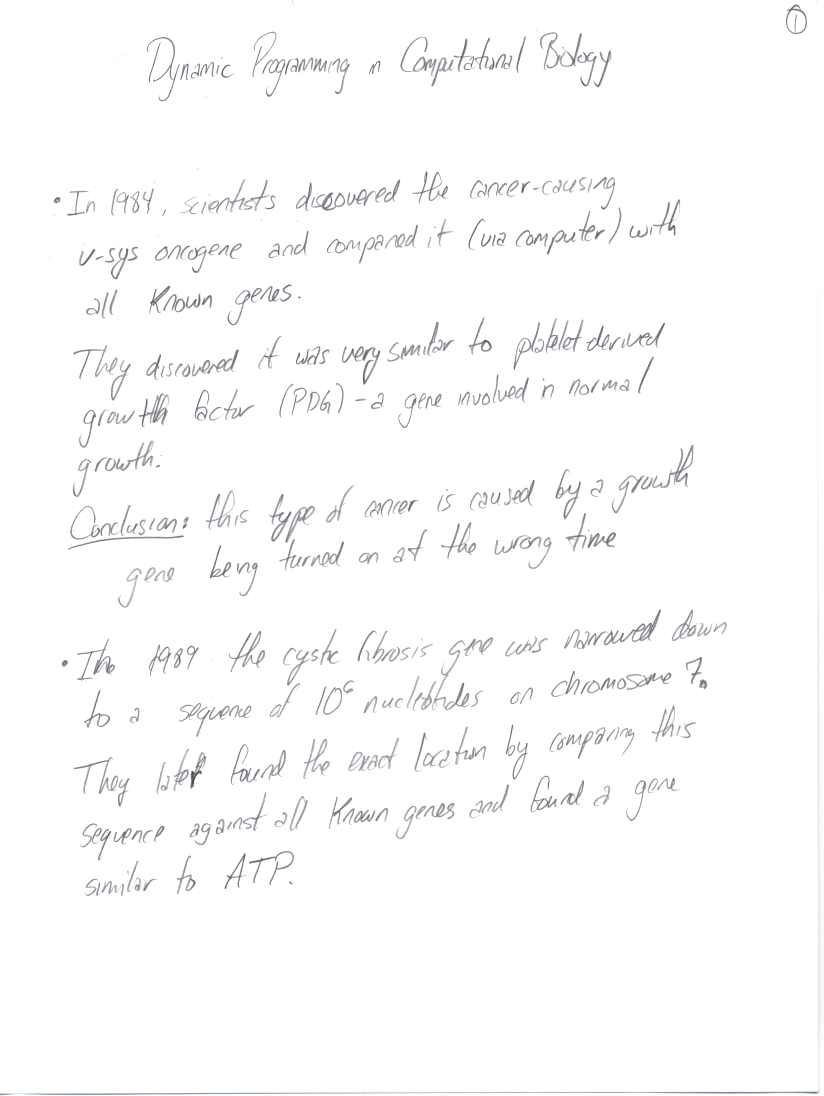 1
Dynamic Programming in Computational Biology
• In 1984, scientists discovered the cancer-causing
v-sys oncogene and compared it (via computer) with
all known genes.
They discovered it was very similar to platelet derived
growth factor (PDG) - a gene involved in normal
growth.
Conclusion: this type of cancer is caused by a growth
gene being turned on at the wrong time
• In 1989 the cystic fibrosis gene was narrowed down
to a sequence of 10⁶ nucleotides on chromosome 7.
They later found the exact location by comparing this
sequence against all known genes and found a gene
similar to ATP.